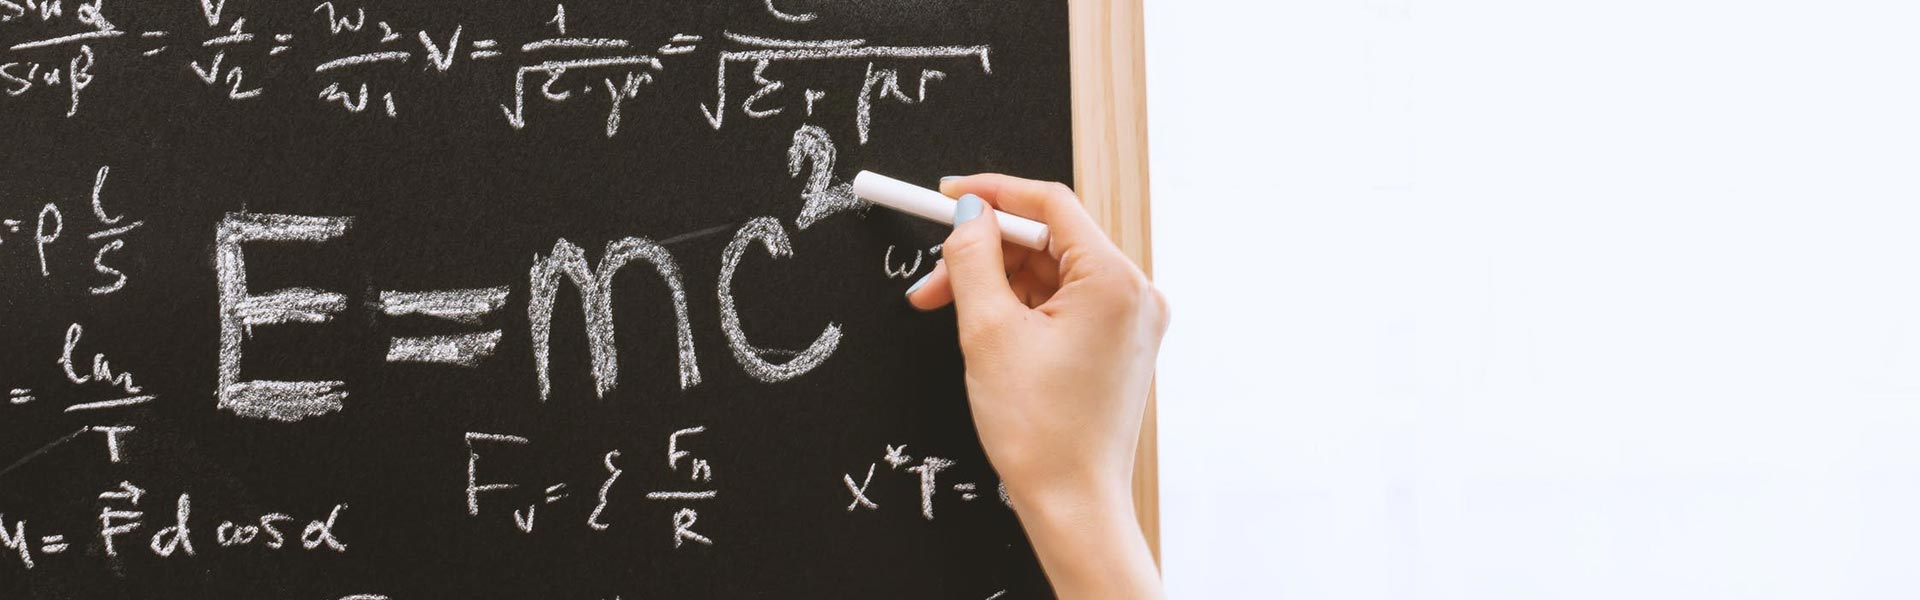 sin α / sin β = V₁ / V₂ = w₂ / w₁
V = 1 / √(ε·μr) = c / √(εr μr)
= ρ l / S
E = mc²
ω
= ln₂ / T
F_v = { F_n / R
x*T =
M = F⃗ d cos α